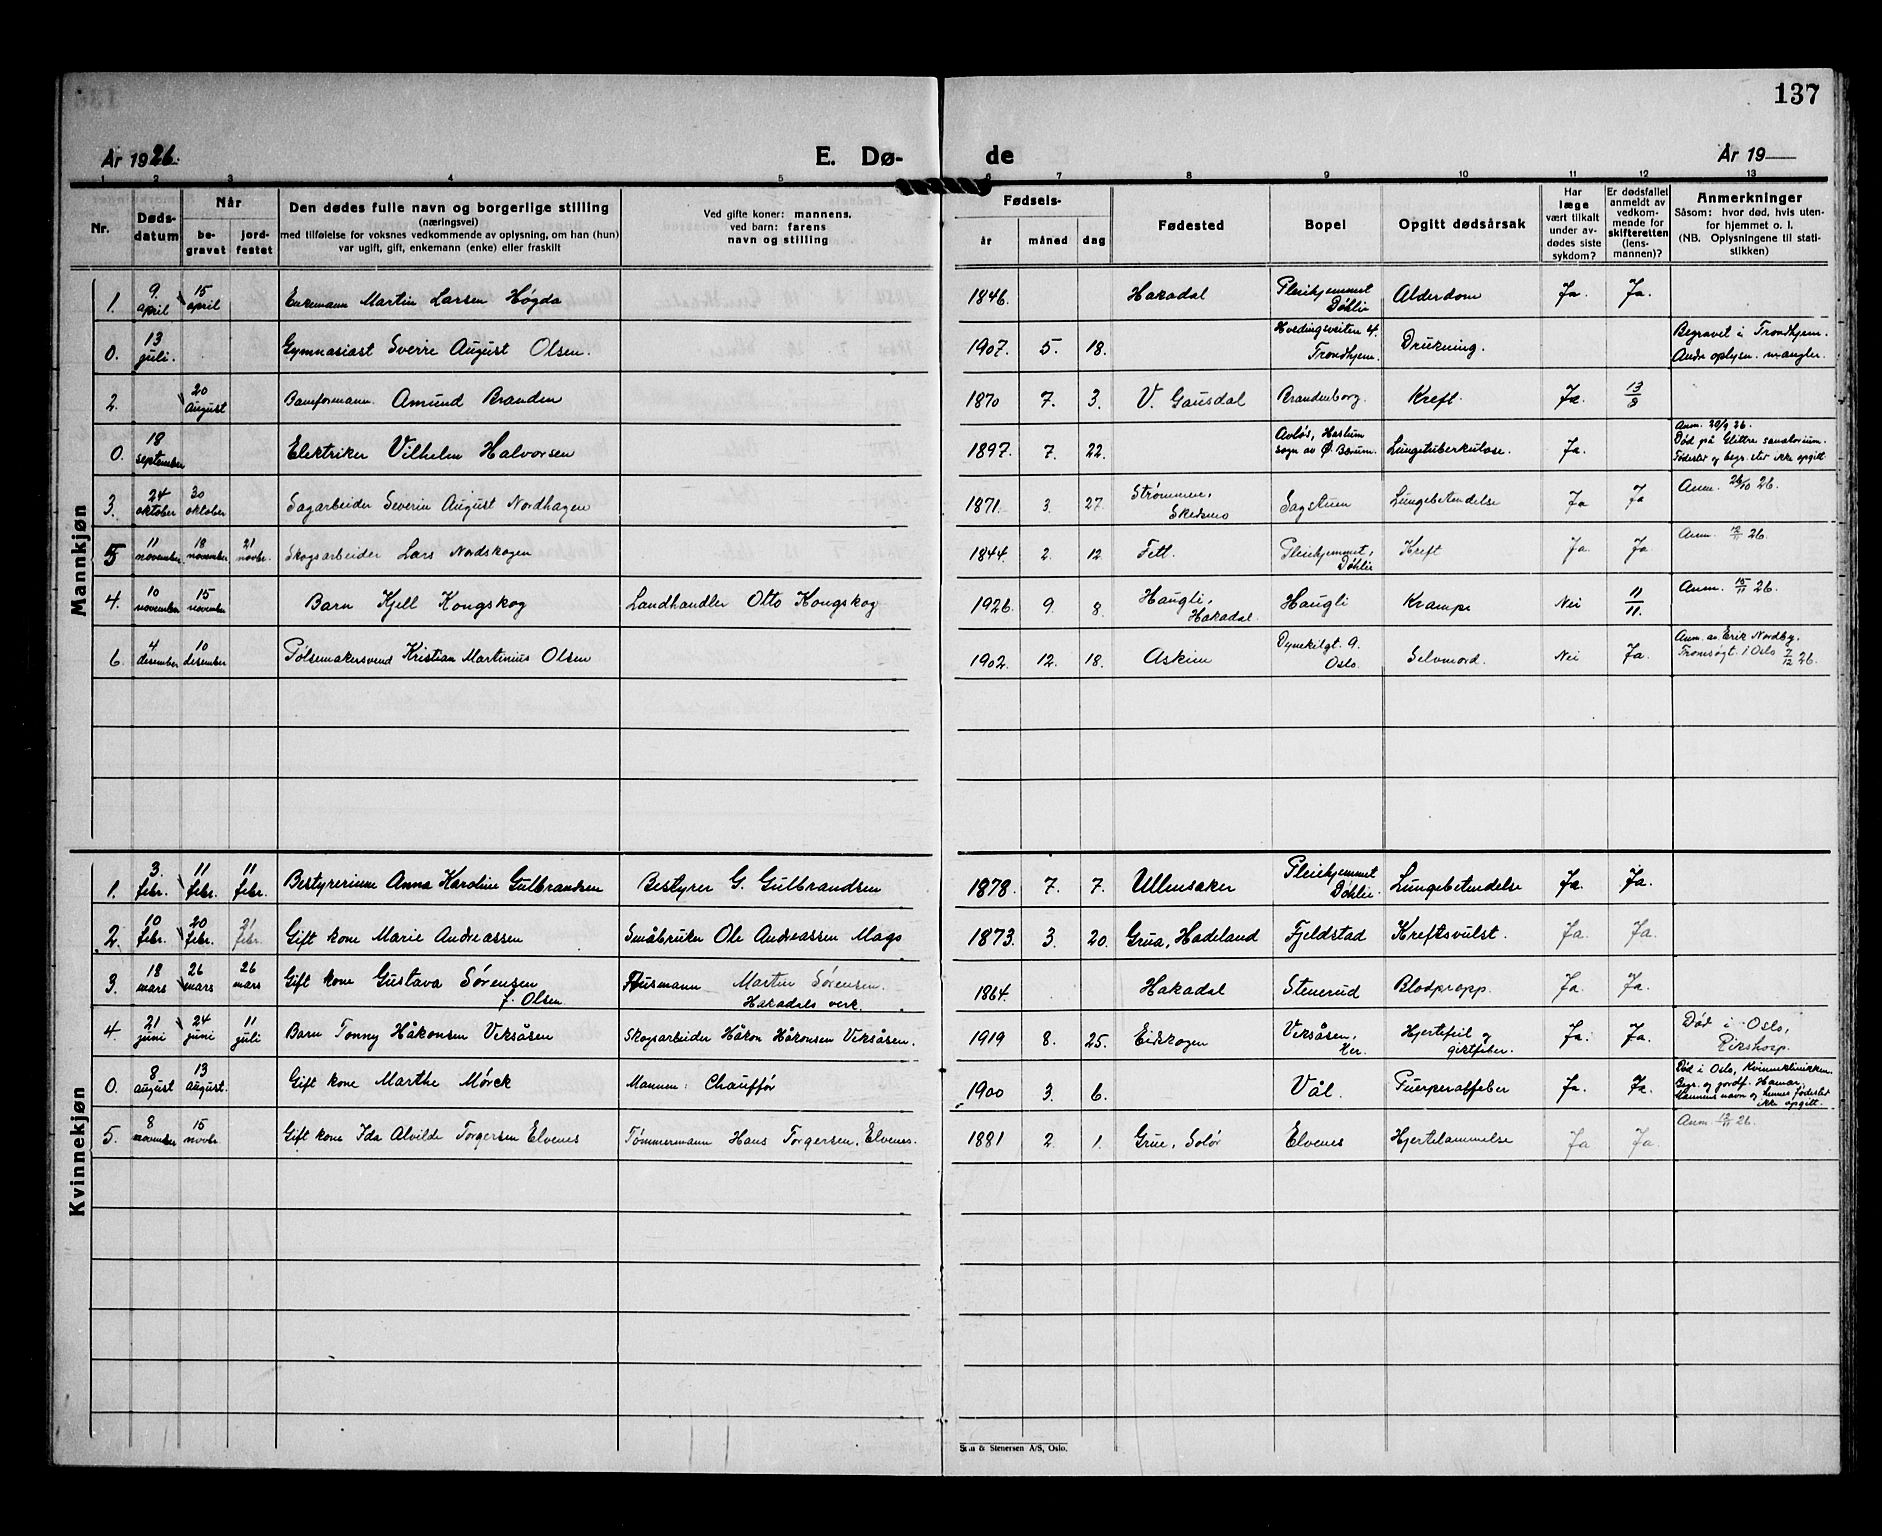 137
År 1926.
E. Dø-
de
År 19
1 2 3 4 5 6 7 8 9 10 11 12 13
Nr.
Døds-
datum
Når
be-
gravet
jord-
festet
Den dødes fulle navn og borgerlige stilling
(næringsvei)
med tilføielse for voksnes vedkommende av oplysning, om han (hun)
var ugift, gift, enkemann (enke) eller fraskilt
Ved gifte koner: mannens,
ved barn: farens
navn og stilling
Fødsels-
år
måned
dag
Fødested
Bopel
Opgitt dødsårsak
Har
læge
vært tilkalt
under av-
dødes siste
sykdom?
Er dødsfallet
anmeldt av
vedkom-
mende for
skifteretten
(lens-
mannen)?
Anmerkninger
Såsom: hvor død, hvis uten-
for hjemmet o. l.
(NB. Oplysningene til stati-
stikken)
Mannkjøn
1. 9 april 15 april Enkemann Martin Larsen Høgda 1846. Hakadal Pleiehjemmet Døhlie Alderdom Ja. Ja.
0. 13 juli. Gymnasiast Sverre August Olsen. 1907. 5. 18. Trondhjem. Drukning. Begravet i Trondhjem.
Andre oplysn. mangler.
2. 20 August Baneformann Amund Branden 1870 7. 3. V. Gausdal Brandenborg. Kreft. Ja. 13/8
0. 18 september Elektriker Vilhelm Halvorsen 1897. 7. 22. Avløs, Haslum sogn av Ø. Bærum. Lungetuberkulose. Ja. Anm. 20/9 26.
Død på Glittre sanatorium.
Fødested og begr. sted ikke opgitt
3. 24 oktober 30 oktober Sagarbeider Severin August Nordhagen 1871. 3. 27. Strømmen, Skedsmo Sagstuen Lungebetendelse Ja Ja Anm. 26/10 26.
5 11 november. 18 november 21 novbr. Skogsarbeider Lars Nordskogen 1844 2. 12. Fett. Pleiehjemmet, Døhlie Kreft Ja. Ja Anm. 12/11 26.
4. 10 november 15 november Barn Kjell Kongskog Landhandler Otto Kongskog 1926. 9. 8. Haugli, Hakadal. Haugli Krampe Nei 11/11. Anm. 15/11 26.
6. 4 desember 10 desember Pølsemakersvend Kristian Martinius Olsen 1902. 12. 18. Askim Dynekilgt. 9. Oslo. Selvmord. Nei Ja. Anm. av Erik Nordby,
Tromsøgt. i Oslo 7/12 26.
Kvinnekjøn
1. 3. febr. 11 febr. 11 febr. Bestyrerinne Anna Karoline Gulbrandsen Bestyrer G. Gulbrandsen 1878. 7. 7. Ullensaker Pleiehjemmet Døhlie. Lungebetendelse Ja. Ja.
2. 10 febr. 20 febr. 21 febr. Gift kone Marie Andreassen Småbruker Ole Andreassen Mago 1873. 3. 20. Grua, Hadeland Fjeldstad Kreftsvulst. Ja. Ja.
3. 18 mars 26 mars 26 mars Gift kone Gustava Sørensen f. Olsen Husmann Martin Sørensen. Hakadals verk. 1864. Hakadal Stenerud Blodpropp. Ja. Ja.
4. 21 juni 24 juni 11 juli Barn Tonny Håkonsen Veksåsen Skogsarbeider Håkon Håkonsen Veksåsen. 1919 8. 25. Eidskogen Veksåsen, Her. Hjertefeil og giktfeber. Ja. Ja. Død i Oslo,
Rikshosp.
0. 8 august 13 august. Gift kone Marthe Mørck Mannen: Chauffør 1900 3. 6. Vål. Puerperalfeber Ja. Ja. Død i Oslo, Kvinneklinikken.
Begr. og jordf. Hamar,
Mannens navn og hennes fødested
ikke opgitt.
5. 8 november 15 novbr. Gift kone Ida Alvilde Torgersen Elvenes Tømmermann Hans Torgersen, Elvenes. 1881 2. 1. Grue, Solør Elvenes Hjertelammelse Ja Ja. Anm. 12/11 26.
& Stenersen A/S, Oslo.